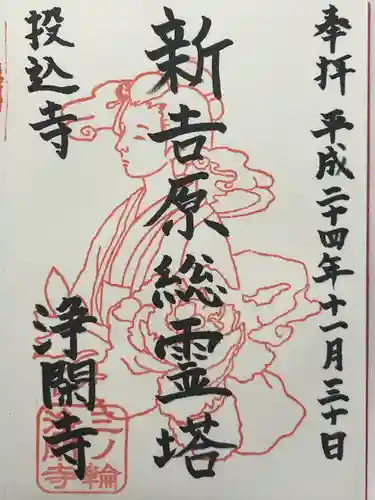 奉拝 平成二十四年十一月三十日
新吉原総霊塔
投込寺
浄閑寺
三ノ輪